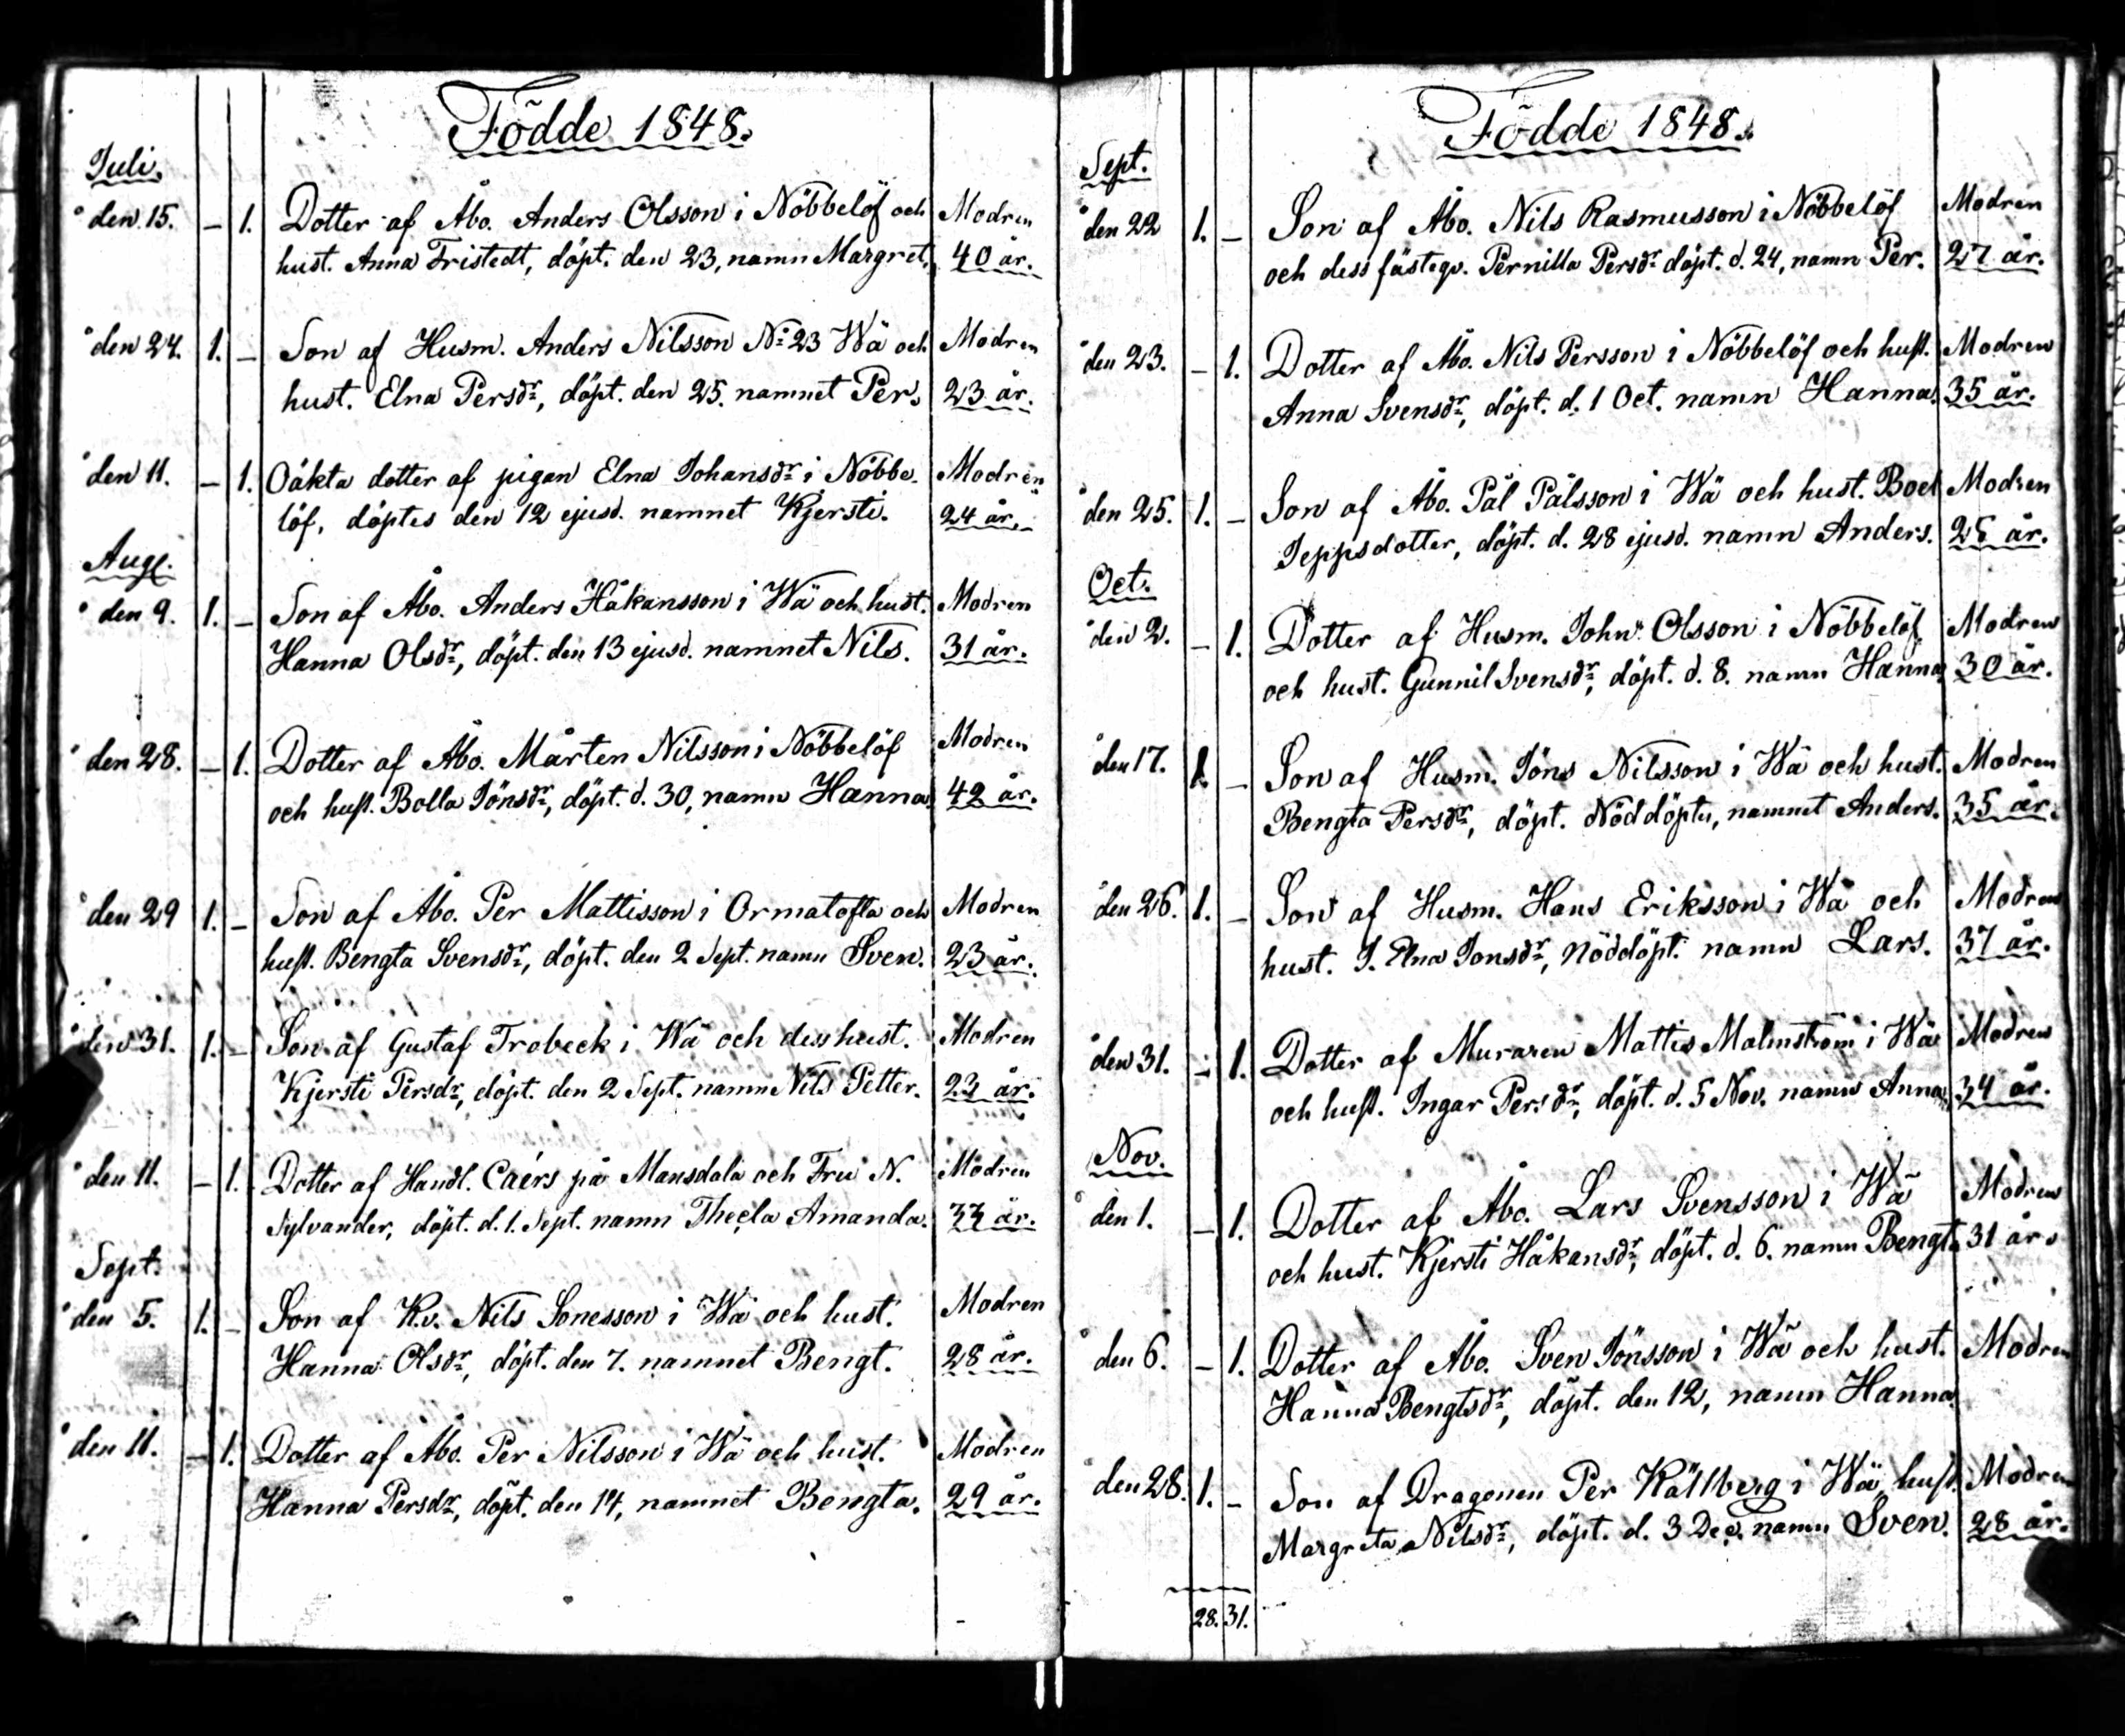 Födde 1848.
Juli.
den 15. – 1. Dotter af Åbo. Anders Olsson i Nöbbelöf och Modren
hust. Anna Fristedt, döpt. den 23, namn Margret. 40 år.
den 24. 1. – Son af Husm. Anders Nilsson No 23 Wä och Modren
hust. Elna Persdr, döpt. den 25. namnet Per. 23 år.
den 11. – 1. Oäkta dotter af pigan Elna Johansdr i Nöbbe- Modren
löf, döptes den 12 ejusd. namnet Kjersti. 24 år.
Aug.
den 9. 1. – Son af Åbo. Anders Håkansson i Wä och hust. Modren
Hanna Olsdr, döpt. den 13 ejusd. namnet Nils. 31 år.
den 28. – 1. Dotter af Åbo. Mårten Nilsson i Nöbbelöf Modren
och hust. Bolla Jönsdr, döpt. d. 30, namn Hanna. 42 år.
den 29 1. – Son af Åbo. Per Mattisson i Ormatofta och Modren
hust. Bengta Svensdr, döpt. den 2 Sept. namn Sven. 23 år.
den 31. 1. – Son af Gustaf Trobeck i Wä och dess hust. Modren
Kjersti Persdr, döpt. den 2 Sept. namn Nils Petter. 23 år.
den 11. – 1. Dotter af Handl. Caérs på Mansdala och Fru N. Modren
Sylvander, döpt. d. 1. Sept. namn Thecla Amanda. 33 år.
Sept.
den 5. 1. – Son af Kv. Nils Sonesson i Wä och hust. Modren
Hanna Olsdr, döpt. den 7. namnet Bengt. 28 år.
den 11. – 1. Dotter af Åbo. Per Nilsson i Wä och hust. Modren
Hanna Persdr, döpt. den 14, namnet Bengta. 29 år.
Födde 1848.
Sept.
den 22 1. – Son af Åbo. Nils Rasmusson i Nöbbelöf Modren
och dess fästeqv. Pernilla Persdr döpt. d. 24, namn Per. 27 år.
den 23. – 1. Dotter af Åbo. Nils Persson i Nöbbelöf och hust. Modren
Anna Svensdr, döpt. d. 1 Oct. namn Hanna. 35 år.
den 25. 1. – Son af Åbo. Pål Pålsson i Wä och hust. Boel Modren
Jeppsdotter, döpt. d. 28 ejusd. namn Anders. år.
Oct.
den 2. – 1. Dotter af Husm. John Olsson i Nöbbelöf Modren
och hust. Gunnil Svensdr, döpt. d. 8. namn Hanna. 30 år.
den 17. 1. – Son af Husm. Jöns Nilsson i Wä och hust. Modren
Bengta Persdr, döpt. Nöddöptes, namnet Anders. 35 år.
den 26. 1. – Son af Husm. Hans Eriksson i Wä och Modren
hust. J. Elna Jonsdr, nöddöpt. namn Lars. 37 år.
den 31. – 1. Dotter af Muraren Mattis Malmström i Wä Modren
och hust. Ingar Persdr, döpt. d. 5 Nov. namn Anna. 34 år.
Nov.
den 1. – 1. Dotter af Åbo. Lars Svensson i Wä Modren
och hust. Kjersti Håkansdr, döpt. d. 6. namn Bengta 31 år.
den 6. – 1. Dotter af Åbo. Sven Jönsson i Wä och hust. Modren
Hanna Bengtsdr, döpt. den 12, namn Hanna.
den 28. 1. – Son af Dragonen Per Källberg i Wä, hust. Modren
Margreta Nilsdr, döpt. d. 3 Dec. namn Sven. 28 år.
28. 31.